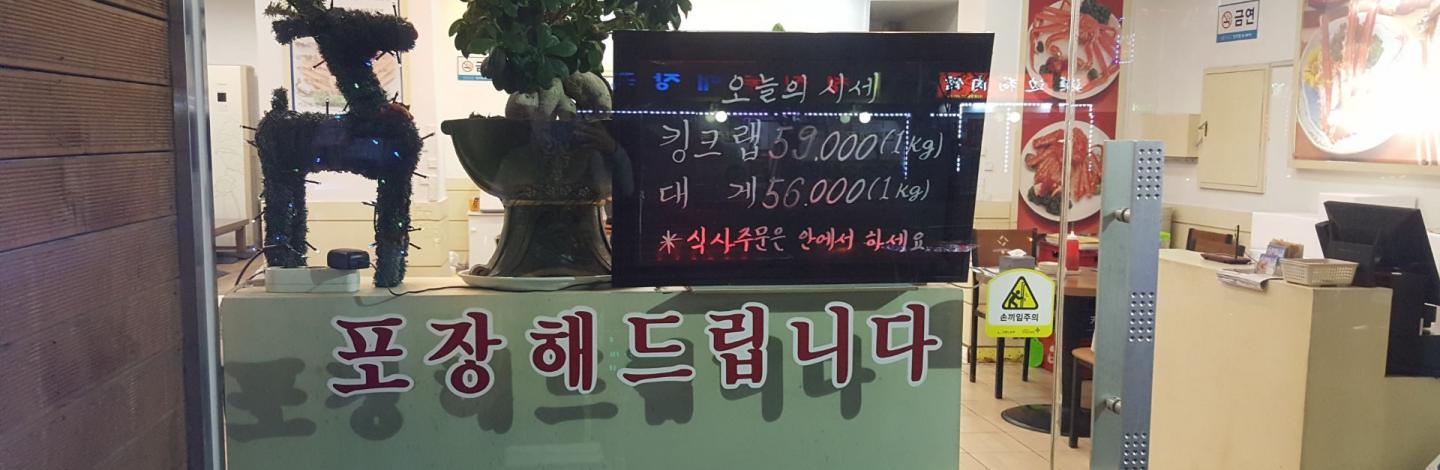 금연
오늘의 시세
킹크랩 59.000(1kg)
대 게 56.000(1kg)
※식사주문은 안에서 하세요
손끼임주의
포장해드립니다